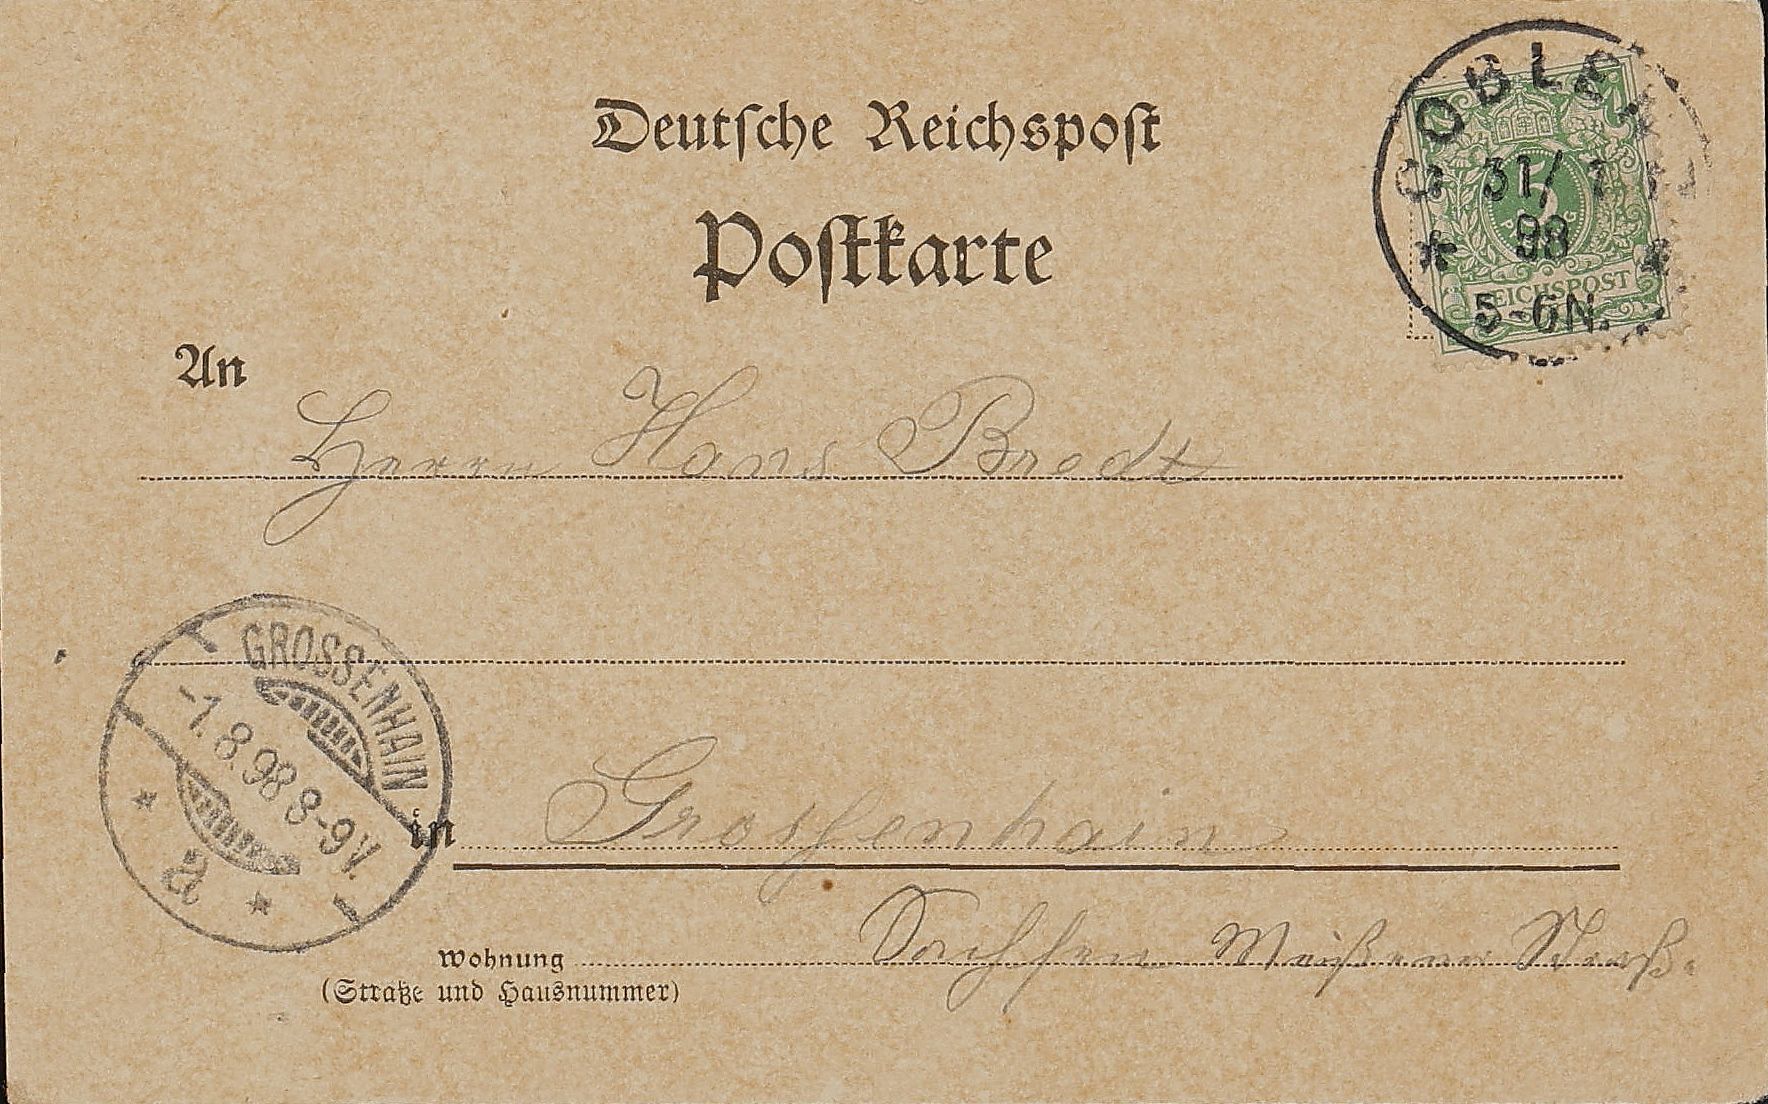 Deutsche Reichspost
Postkarte
COBLE
31/7
98
5-6N.
5
REICHSPOST
An
Herrn Hans Brodt
GROSSENHAIN
-1.8.98 8-9V.
a
in Grossenhain
Sachsen Meißener Straße
Wohnung
(Straße und Hausnummer)